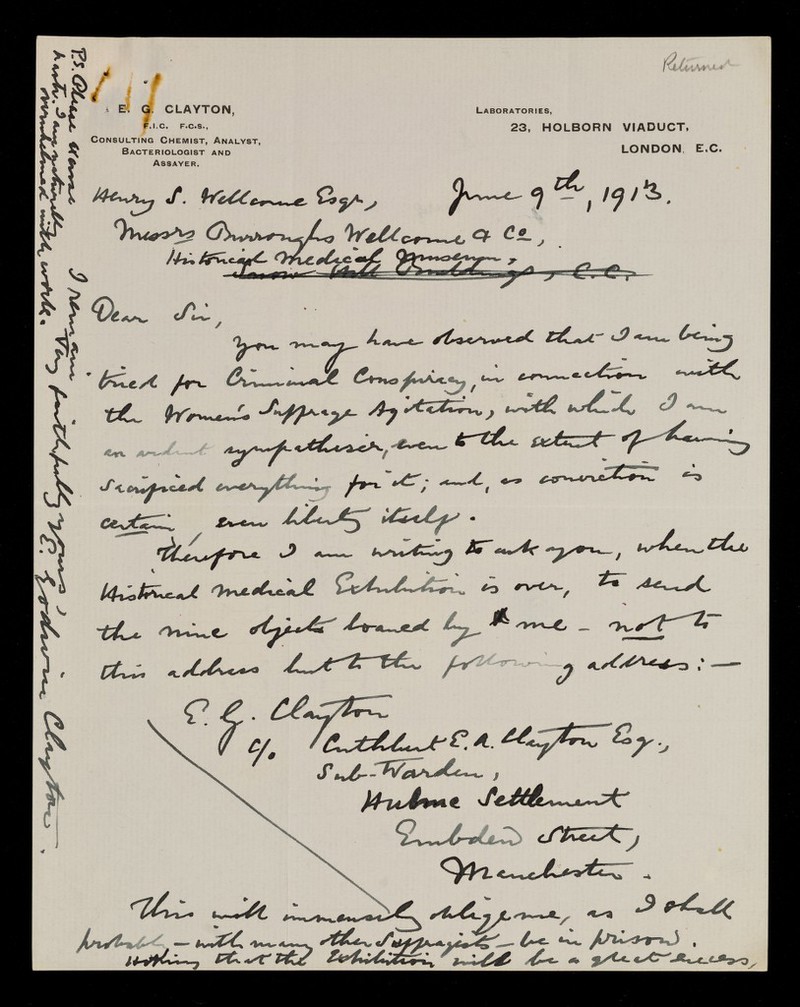 Returned
E. G. CLAYTON,
F.I.C. F.C.S.,
CONSULTING CHEMIST, ANALYST,
BACTERIOLOGIST AND
ASSAYER.
LABORATORIES,
23, HOLBORN VIADUCT,
LONDON, E.C.
June 9th, 1913.
Henry S. Wellcome Esqr,
Messrs Burroughs Wellcome & Co,
Historical Medical Museum,
Snow Hill Buildings, E.C.
Dear Sir,
You may have observed that I am being
tried for Criminal Conspiracy, in connection with
the Women's Suffrage Agitation, with which I am
an ardent sympathiser, even to the extent of having
sacrificed everything for it; and, as conviction is
certain, even liberty itself.
Therefore I am writing to ask you, when the
Historical Medical Exhibition is over, to send
the nine objects loaned by me - not to
this address but to the following address: —
E. G. Clayton
c/o Cuthbert E. A. Clayton Esq.,
Sub-Warden,
Hulme Settlement
Embden Street,
Manchester.
This will immensely oblige me, as I shall
probably - with many other Suffragists - be in prison.
Wishing that the Exhibition will be a great success,
I remain
Very faithfully yours,
E. Godwin Clayton.
P.S. Please excuse
haste. I am naturally
overwhelmed with work.